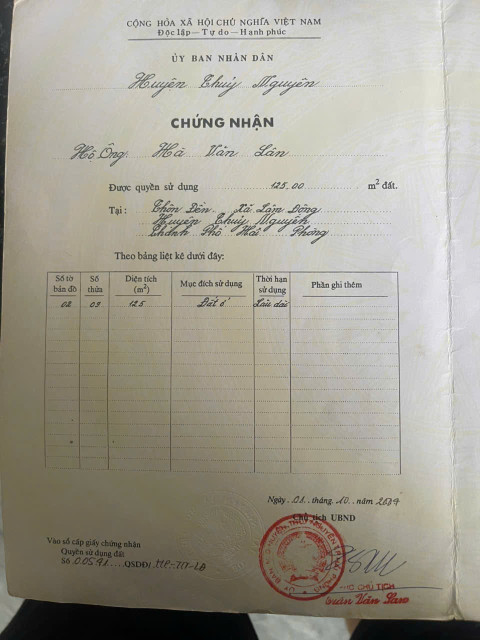 CỘNG HÒA XÃ HỘI CHỦ NGHĨA VIỆT NAM
Độc lập — Tự do — Hạnh phúc
ỦY BAN NHÂN DÂN
Huyện Thuỷ Nguyên
CHỨNG NHẬN
Hộ Ông Hà Văn Lán
Được quyền sử dụng 125.00 m² đất.
Tại : Thôn Đền. Xã Lập Đông
Huyện Thuỷ Nguyên
Thành Phố Hải Phòng
Theo bảng liệt kê dưới đây:
Số tờ bản đồ Số thửa Diện tích (m²) Mục đích sử dụng Thời hạn sử dụng Phần ghi thêm
02 03 125 Đất ở Lâu dài
Ngày 01 tháng 10 năm
Chủ tịch UBND
Vào sổ cấp giấy chứng nhận
Quyền sử dụng đất
Số 00591 QSDĐ/
CHỦ TỊCH